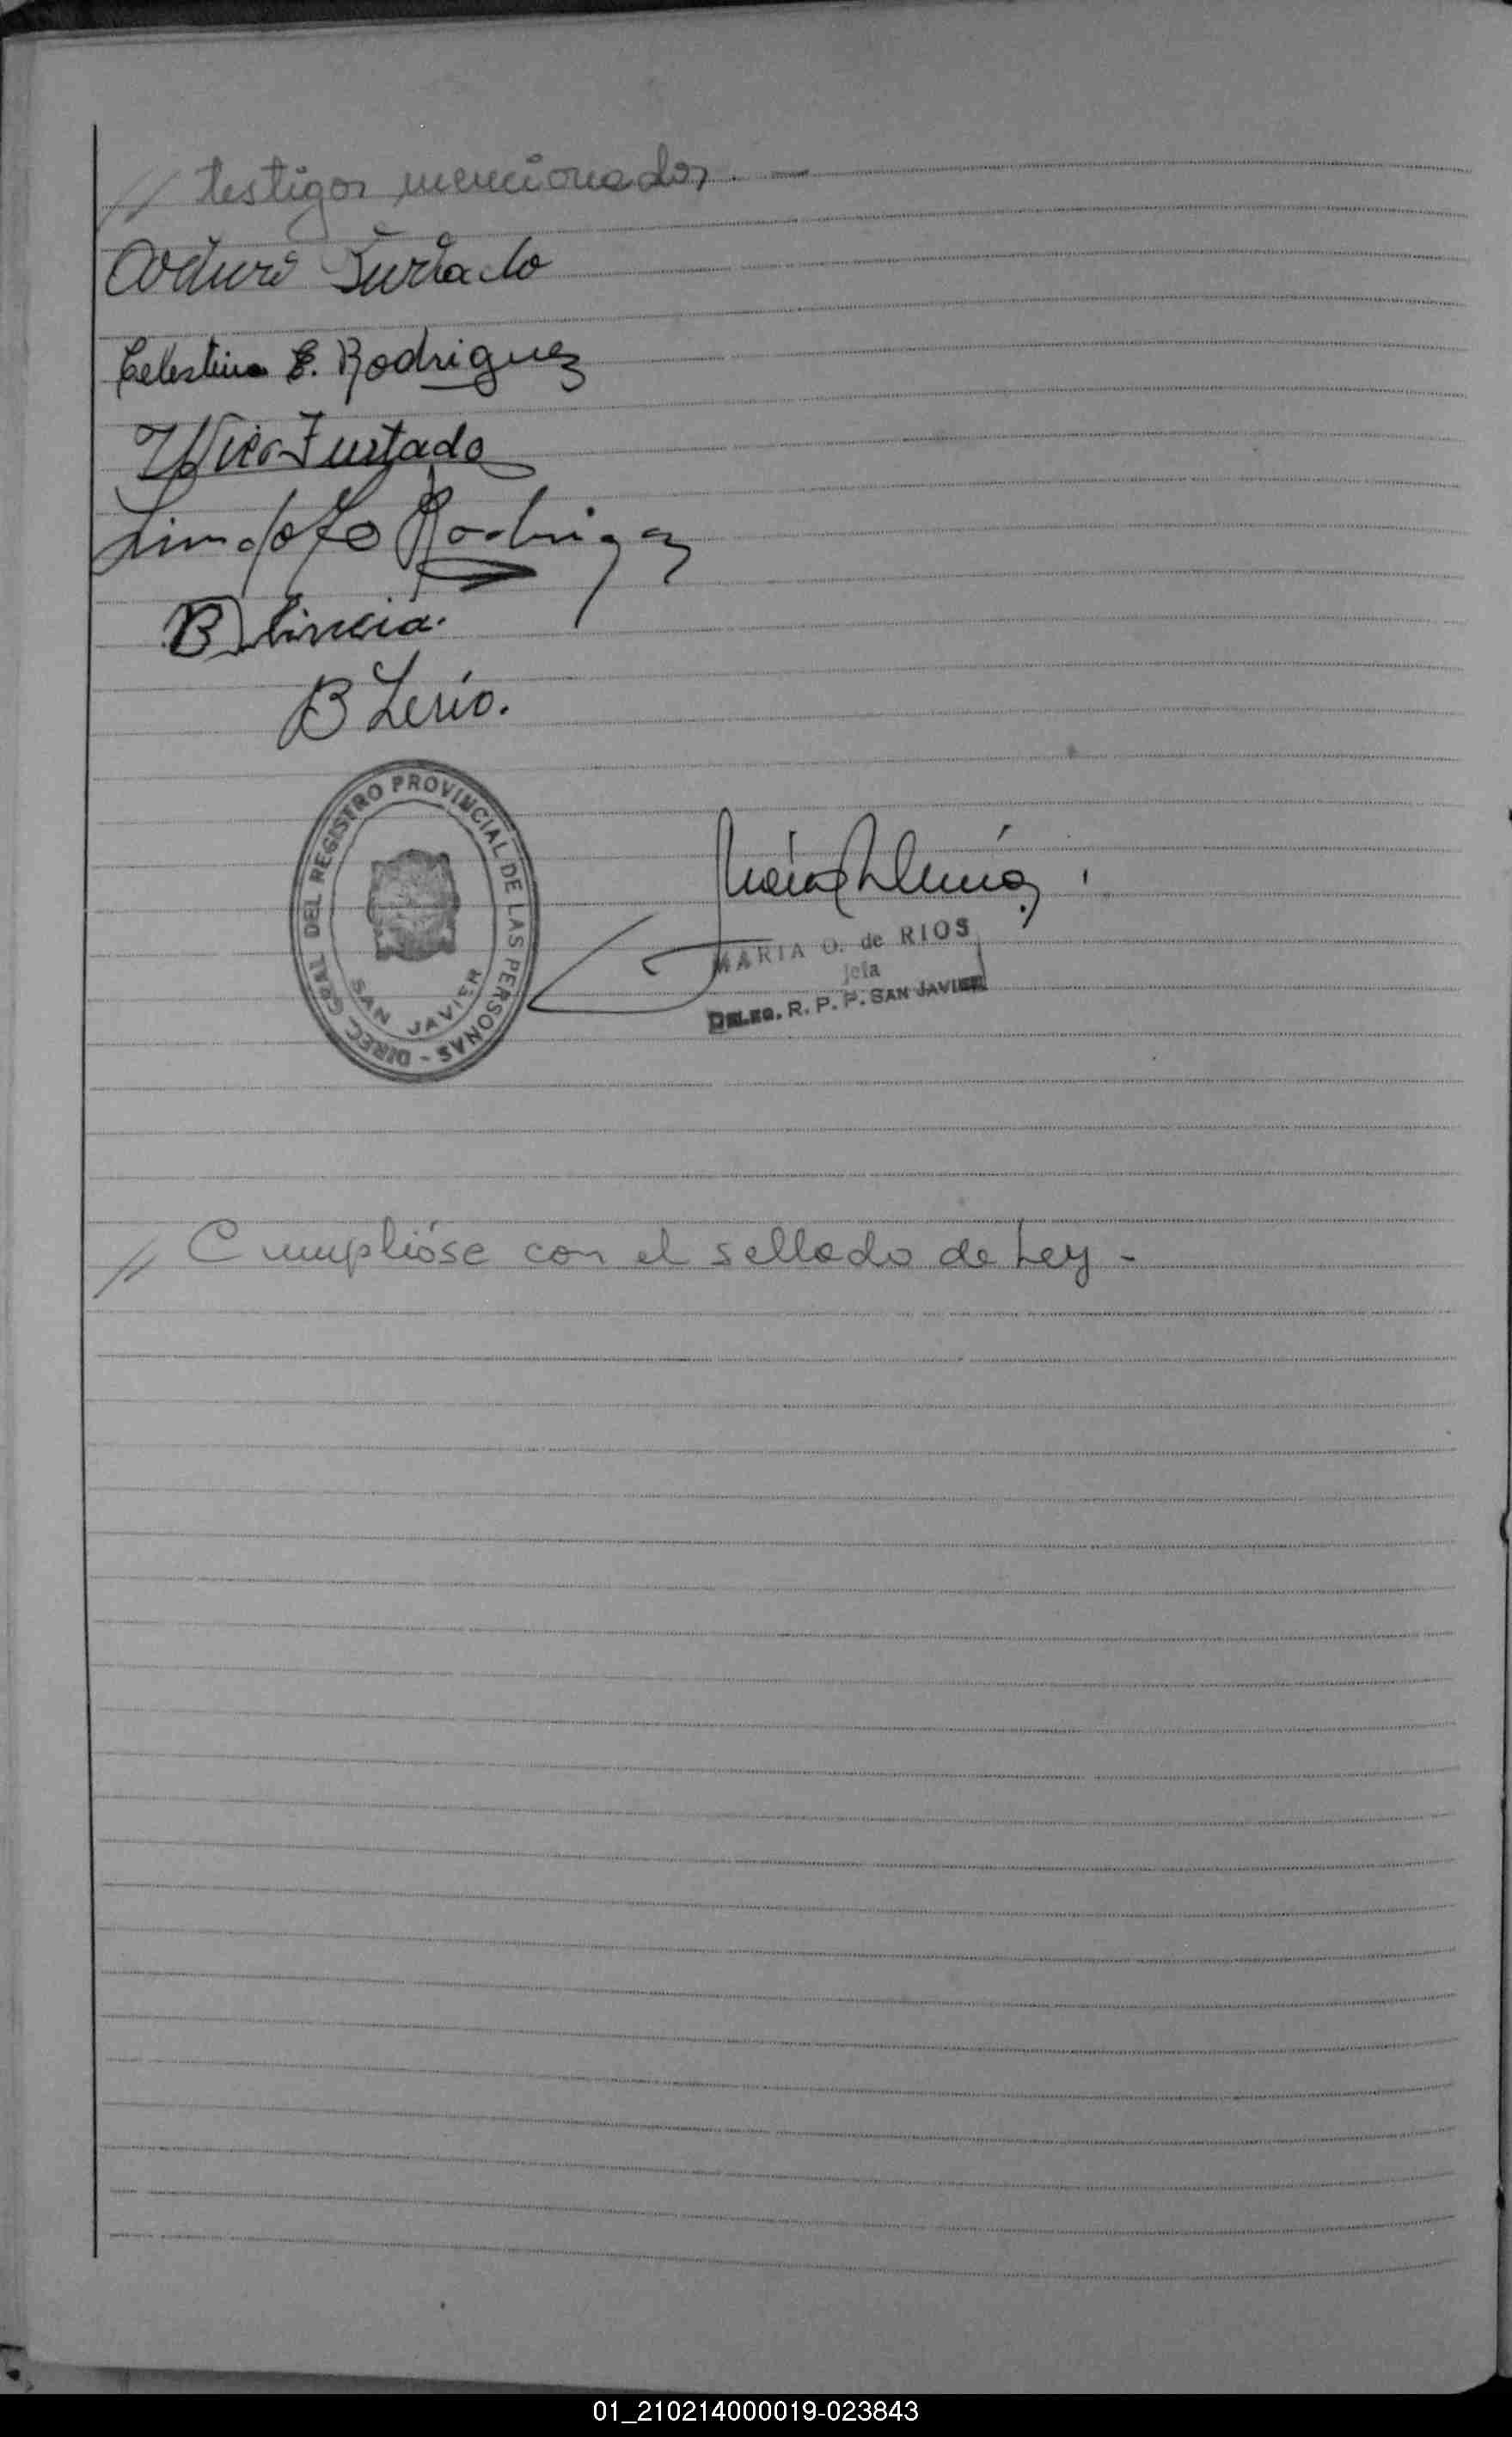 // testigos mencionados. —
Arturo Furtado
Celestina E. Rodriguez
Furtado
Lindolfo Rodriguez
B
B Lerio.
DIREC. GRAL. DEL REGISTRO PROVINCIAL DE LAS PERSONAS -
SAN JAVIER
MARIA O. de RIOS
Jefa
DELEG. R. P. P. SAN JAVIER
// Cumplióse con el sellado de Ley -
01_210214000019-023843